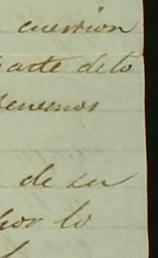 cuestion
parte de lo
tenemos
de su
por lo